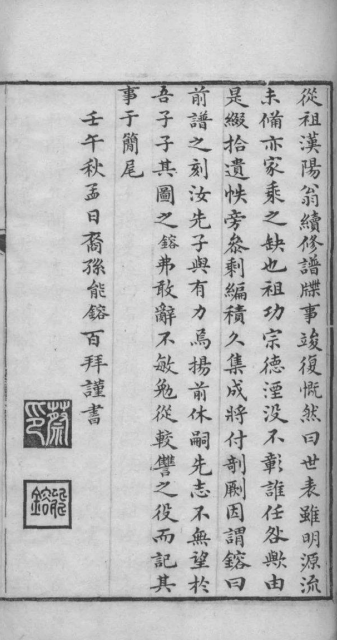 從祖漢陽翁續修譜牒事竣復慨然曰世表雖明源流
未備亦家乘之缺也祖功宗德湮没不彰誰任咎歟由
是綴拾遺帙旁參剩編積久集成將付剞劂因謂鎔曰
前譜之刻汝先子與有力焉揚前休嗣先志不無望於
吾子子其圖之鎔弗敢辭不敏勉從較讐之役而記其
事于簡尾
壬午秋孟日裔孫能鎔百拜謹書
蔡印
能鎔